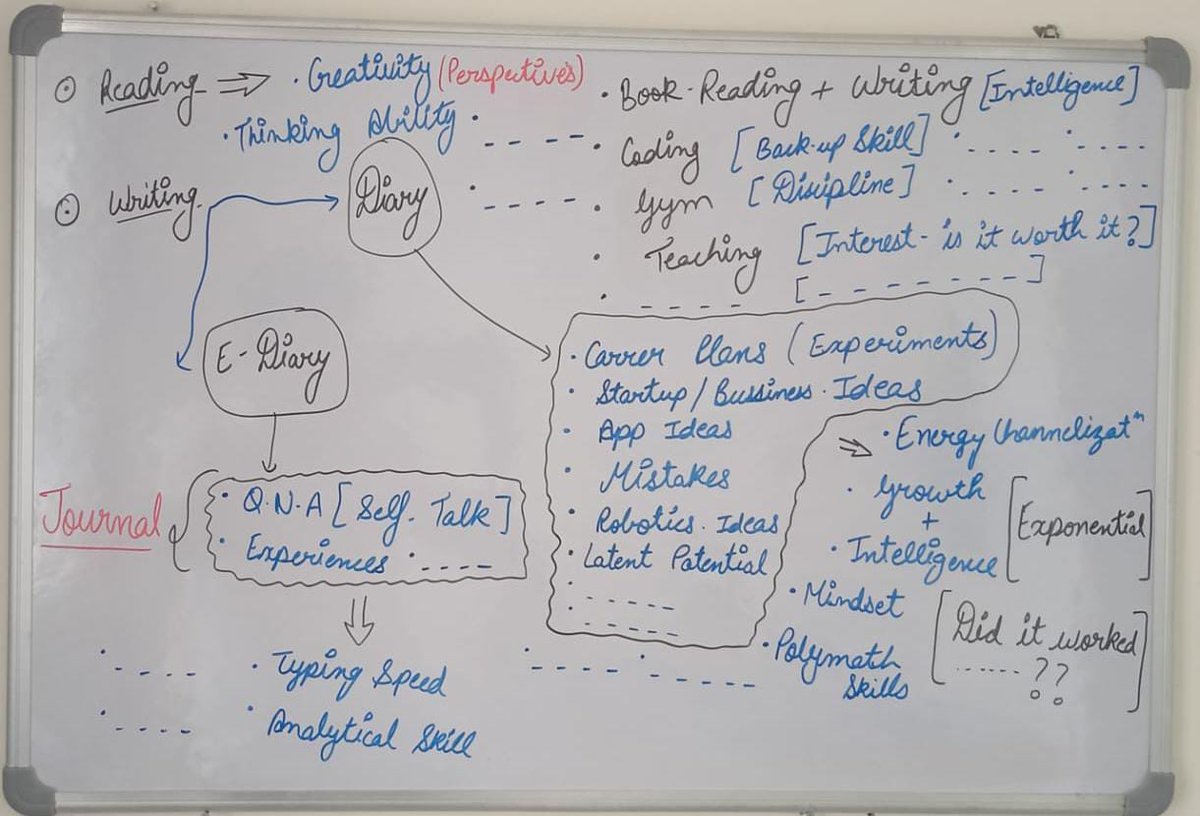 Reading ⇒ · Creativity (Perspectives)
· Thinking Ability · - - - -
Writing. Diary · - - - -
E-Diary
Journal { · Q.N.A [Self-Talk]
· Experiences · - - - -
· - - - - · Typing Speed
· - - - - · Analytical Skill
· Book-Reading + Writing [Intelligence]
· Coding [Back-up Skill] · - - - - · - - - -
· Gym [Disipline] · - - - - · - - - -
· Teaching [Interest- is it worth it?]
· - - - - [- - - - - - - -]
· Carrer Plans (Experiments)
· Startup/Bussiness. Ideas
· App Ideas
· Mistakes
· Robotics. Ideas
· Latent Potential
· - - - - -
· - - - - -
· - - - - · - - - - -
⇒ · Energy Channelizatⁿ
· Growth
+
· Intelligence [Exponential]
· Mindset
· Polymath
Skills
[Did it worked
...... ??]